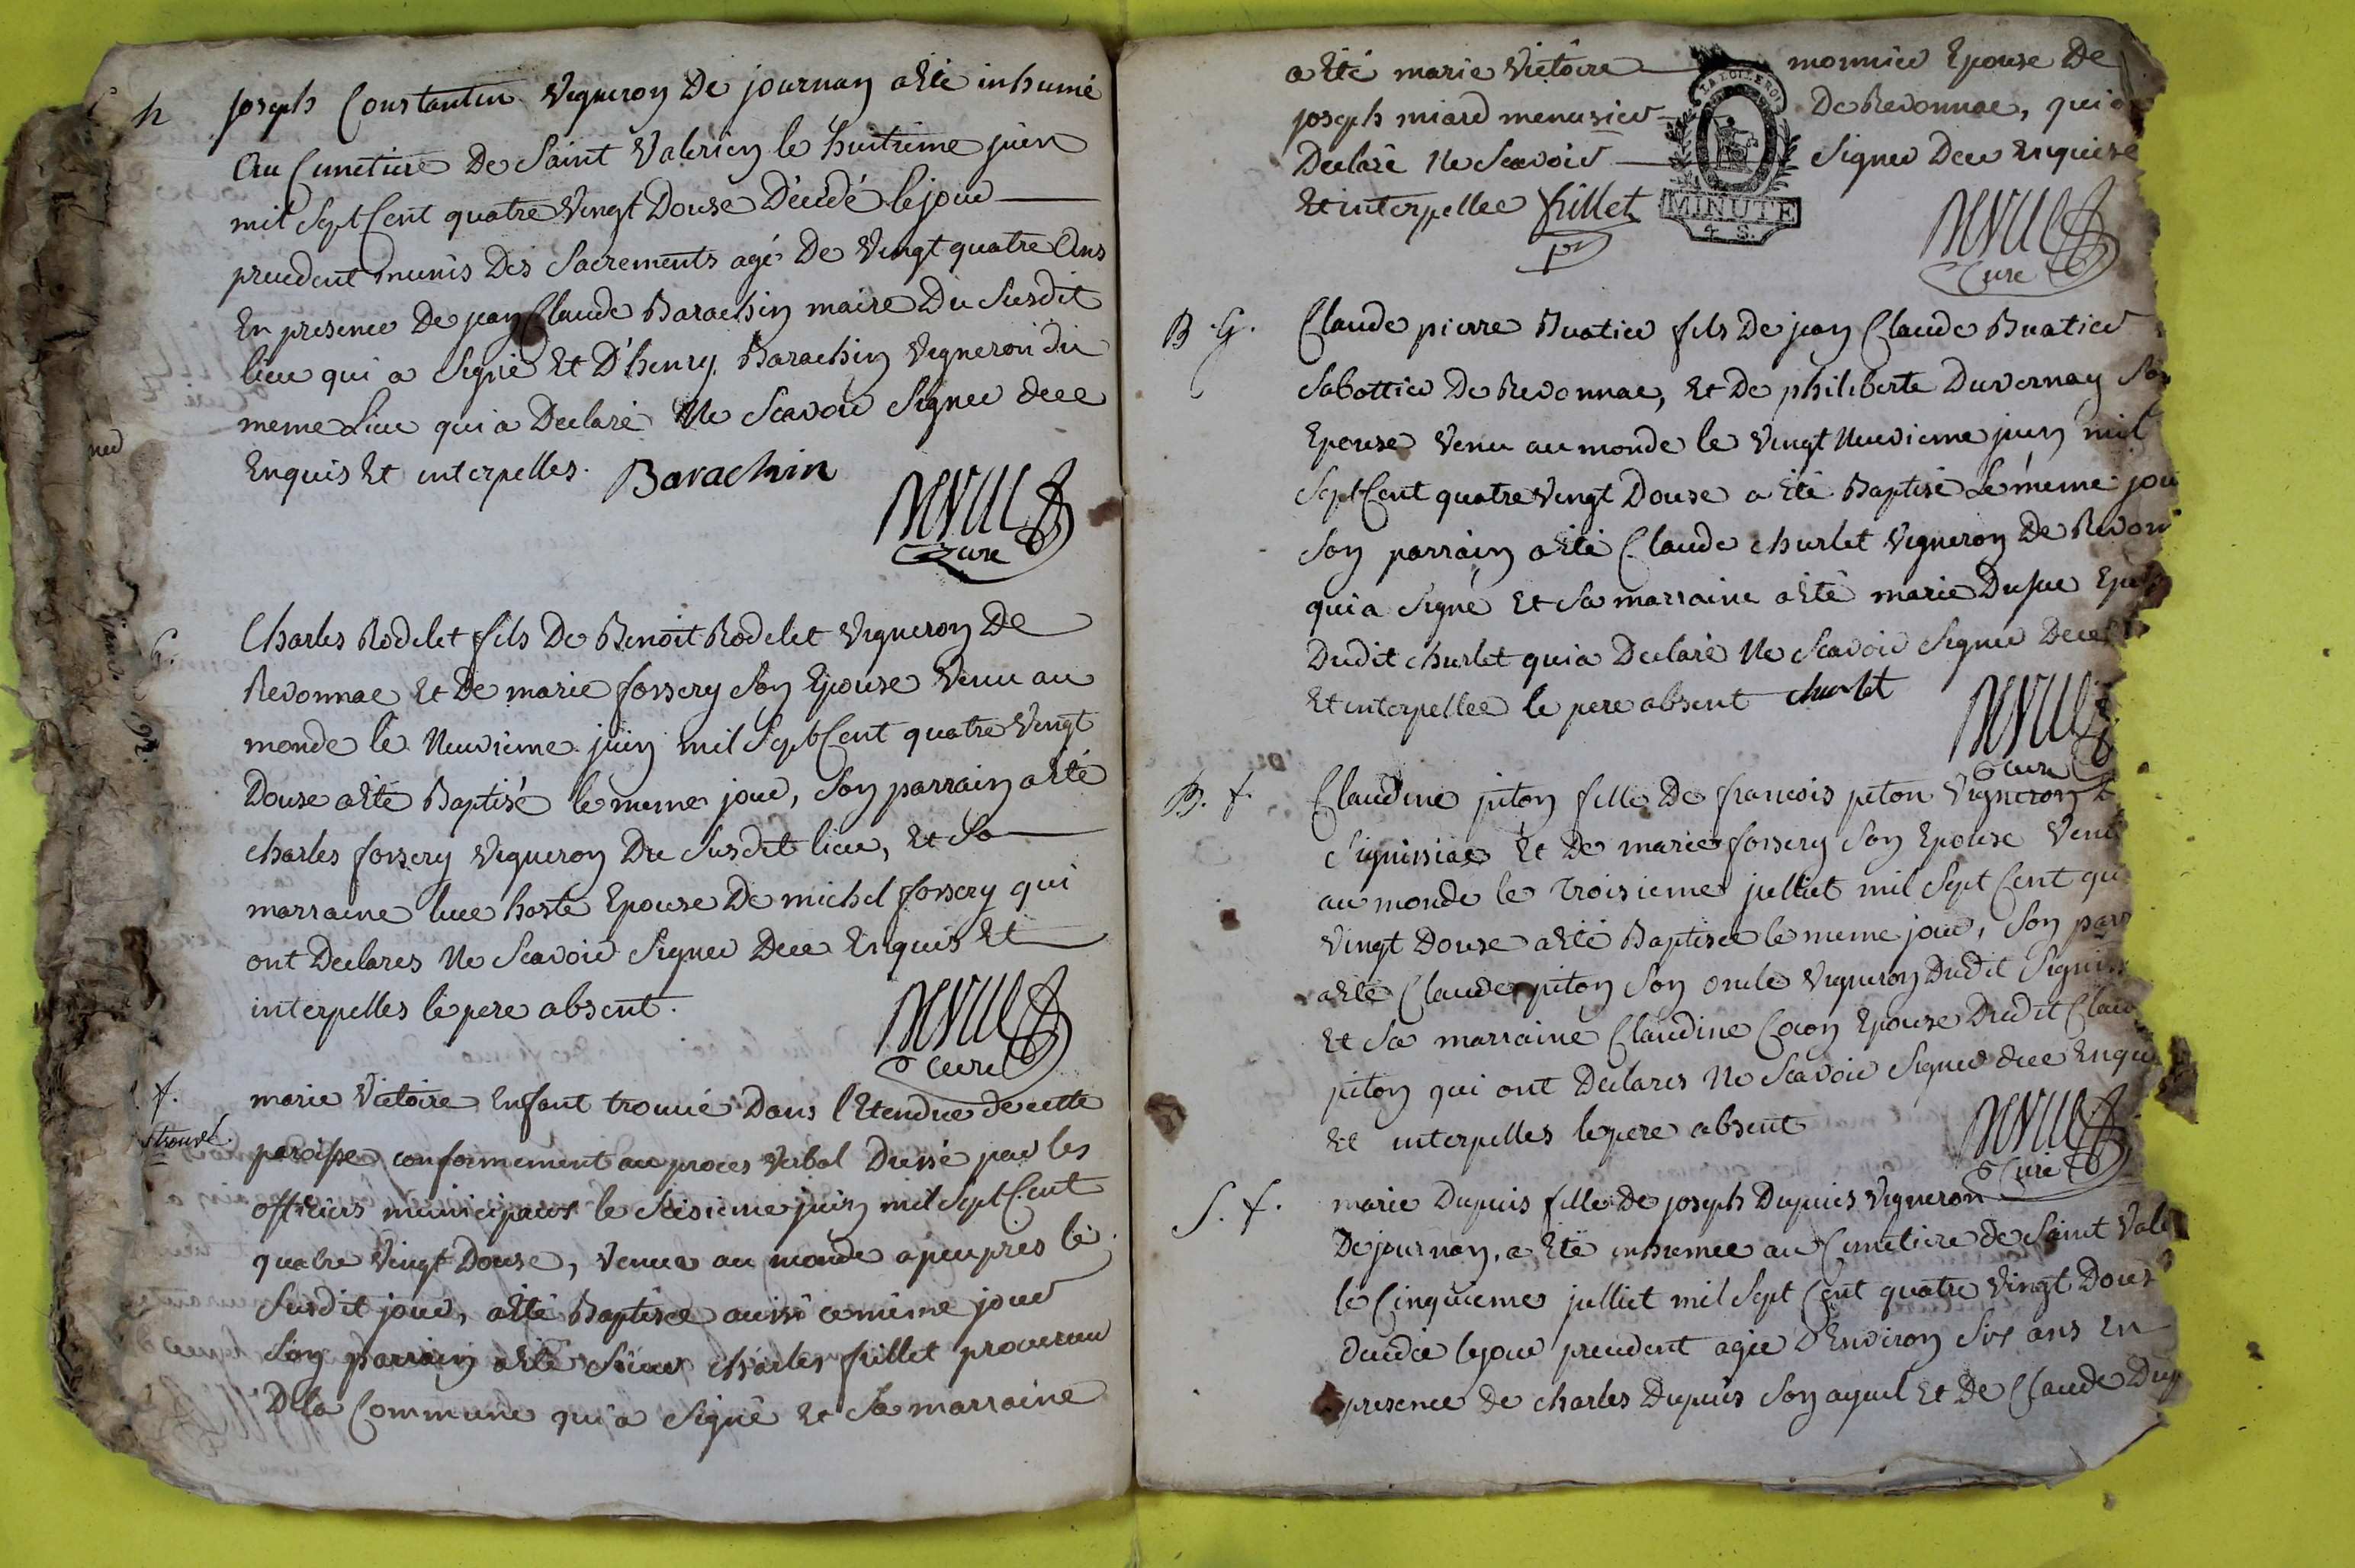 h
joseph Constantin Vigneron De journan a Eté inhumé
Au Cimetiere De Saint Valerien le huitieme juin
mil Sept Cent quatre Vingt Douse Décédé le jour
precedent munis Des Sacrements agé De Vingt quatre Ans
En presence De jean Claude Barachin maire Du Susdit
lieu qui a Signé Et D'henry Barachin Vigneron du
meme Lieu qui a Declaré Ne Scavoir Signer dece
Enquis Et interpelles. Barachin
Curé
G.
Charles Rodelet fils De Benoit Rodelet Vigneron De
Revonnac Et De marie forsery Son Epouse Venu au
monde le Neuvieme juin mil Sept Cent quatre Vingt
Douse a Eté Baptisé le meme jour, Son parrain a Eté
charles forsery Vigneron Du Susdit lieu, Et Sa
marraine luce hoste Epouse De michel forsery qui
ont Declares Ne Scavoir Signer Dece Enquis Et
interpelles le pere absent.
Curé
f.
trouvé.
marie Victoire Enfant trouvé Dans l'Etendue de cette
paroisse conformement au proces Verbal Dressé par les
officiers municipaux le Seisieme juin mil Sept Cent
quatre Vingt Douse, Venue au monde a peu pres le
Susdit jour, a Eté Baptisée aussi ce même jour
Son parrain a Eté Sieur charles frillet procureur
De la Commune qui a Signé Et Sa marraine
a Eté marie Victoire monnier Epouse De
joseph miard menusier De Revonnac, qui a
Declaré Ne Scavoir Signer Dece Enquise
Et interpellee frillet
MINUTE
4 S.
Cure
B. G.
Claude pierre Buatier fils De jean Claude Buatier
Sabottier De Revonnac, Et De philiberte Duvernay Son
Epouse Venu au monde le Vingt Neuvieme juin mil
Sept Cent quatre Vingt Douse a Eté Baptisé Le même jou
Son parrain a Eté Claude churlet Vigneron De Revon
qui a Signé Et Sa marraine a Eté marie Dufue
Dudit churlet qui a Declaré Ne Scavoir Signer Dece
Et interpellee le pere absent churlet
Cure
B. f.
Claudine piton fille De francois piton Vigneron
Signissiac Et De marie forsery Son Epouse Venue
au monde le Troisieme julliet mil Sept Cent qu
Vingt Douse a Eté Baptisee le meme jour, Son parr
a Eté Claude piton Son oncle Vigneron Dudit Signiss
Et Sa marraine Claudine Epouse Dudit Claud
piton qui ont Declares Ne Scavoir Signer dece Enqui
Et interpelles le pere absent
Curé
S. f.
marie Dupuis fille De joseph Dupuis Vigneron
De journan, a Eté inhumee au Cimetiere de Saint Vale
le Cinquieme julliet mil Sept Cent quatre Vingt Dous
decedée le jour precedent agée D'Environ Six ans En
presence de charles Dupuis Son ayeul Et De Claude Dup